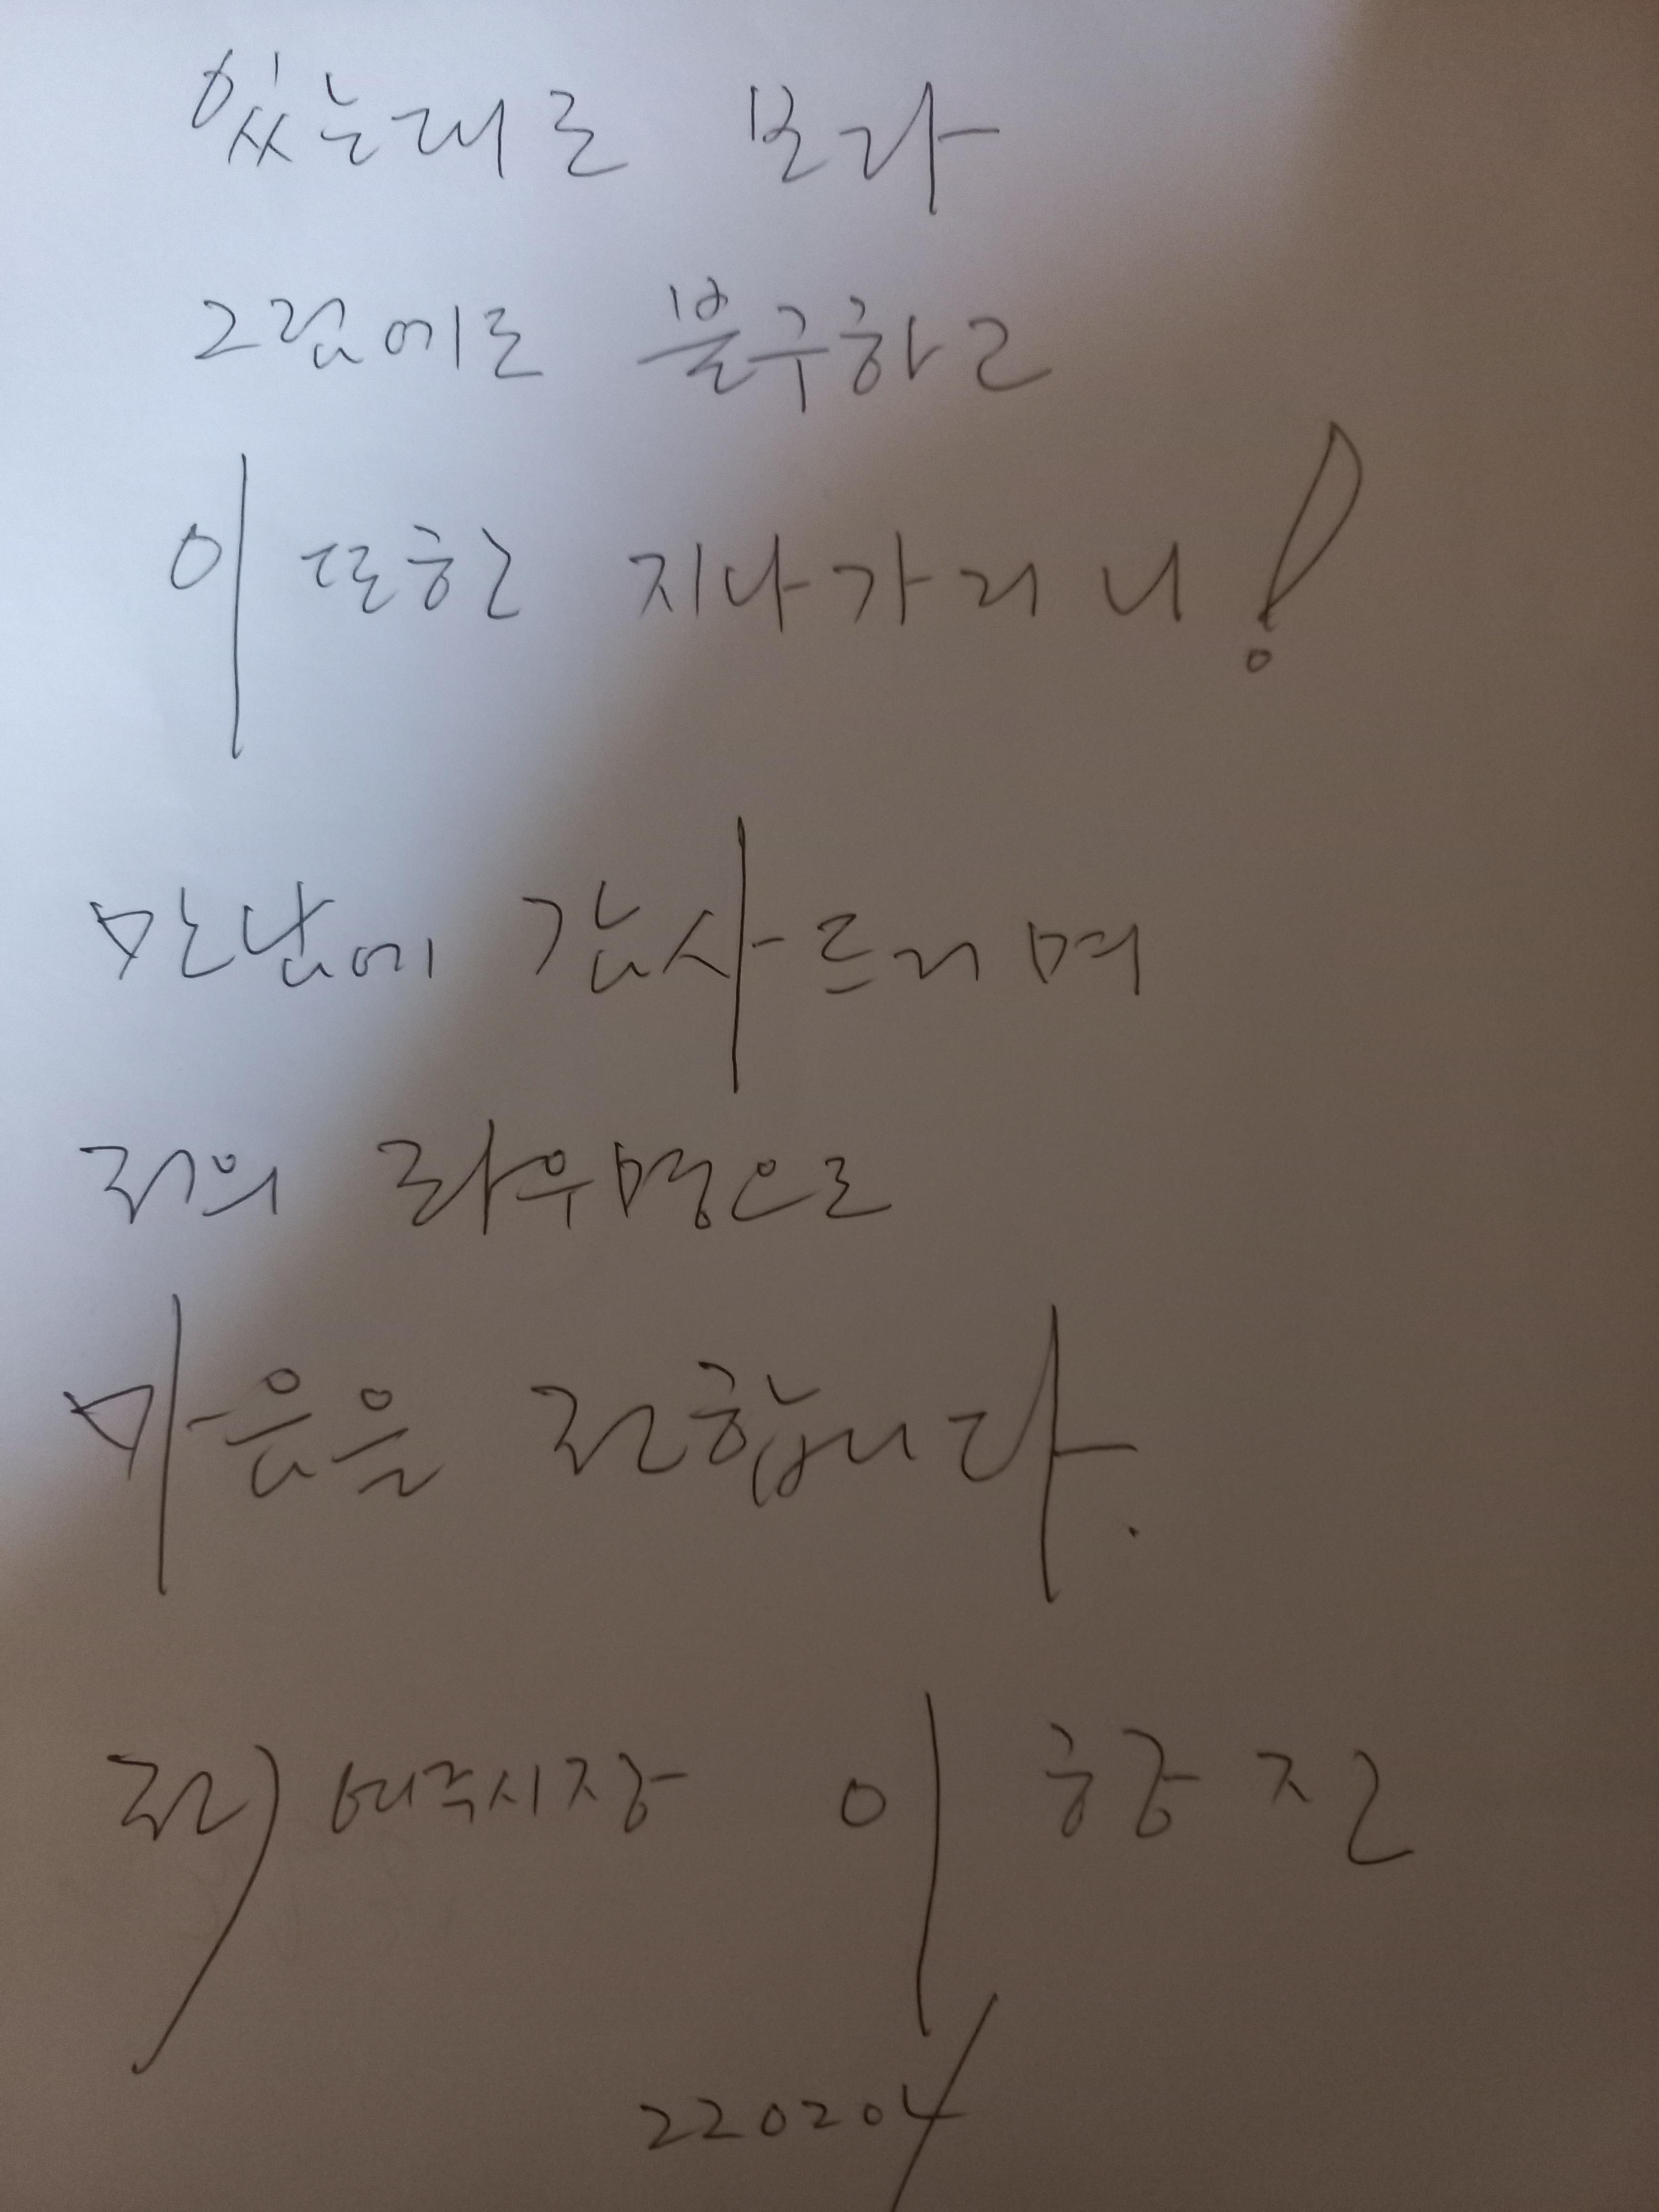 있는대로 보라
그럼에도 불구하고
이 또한 지나가리니!
만남에 감사드리며
저의 좌우명으로
마음을 전합니다.
전) 여주시장 이항진
220204